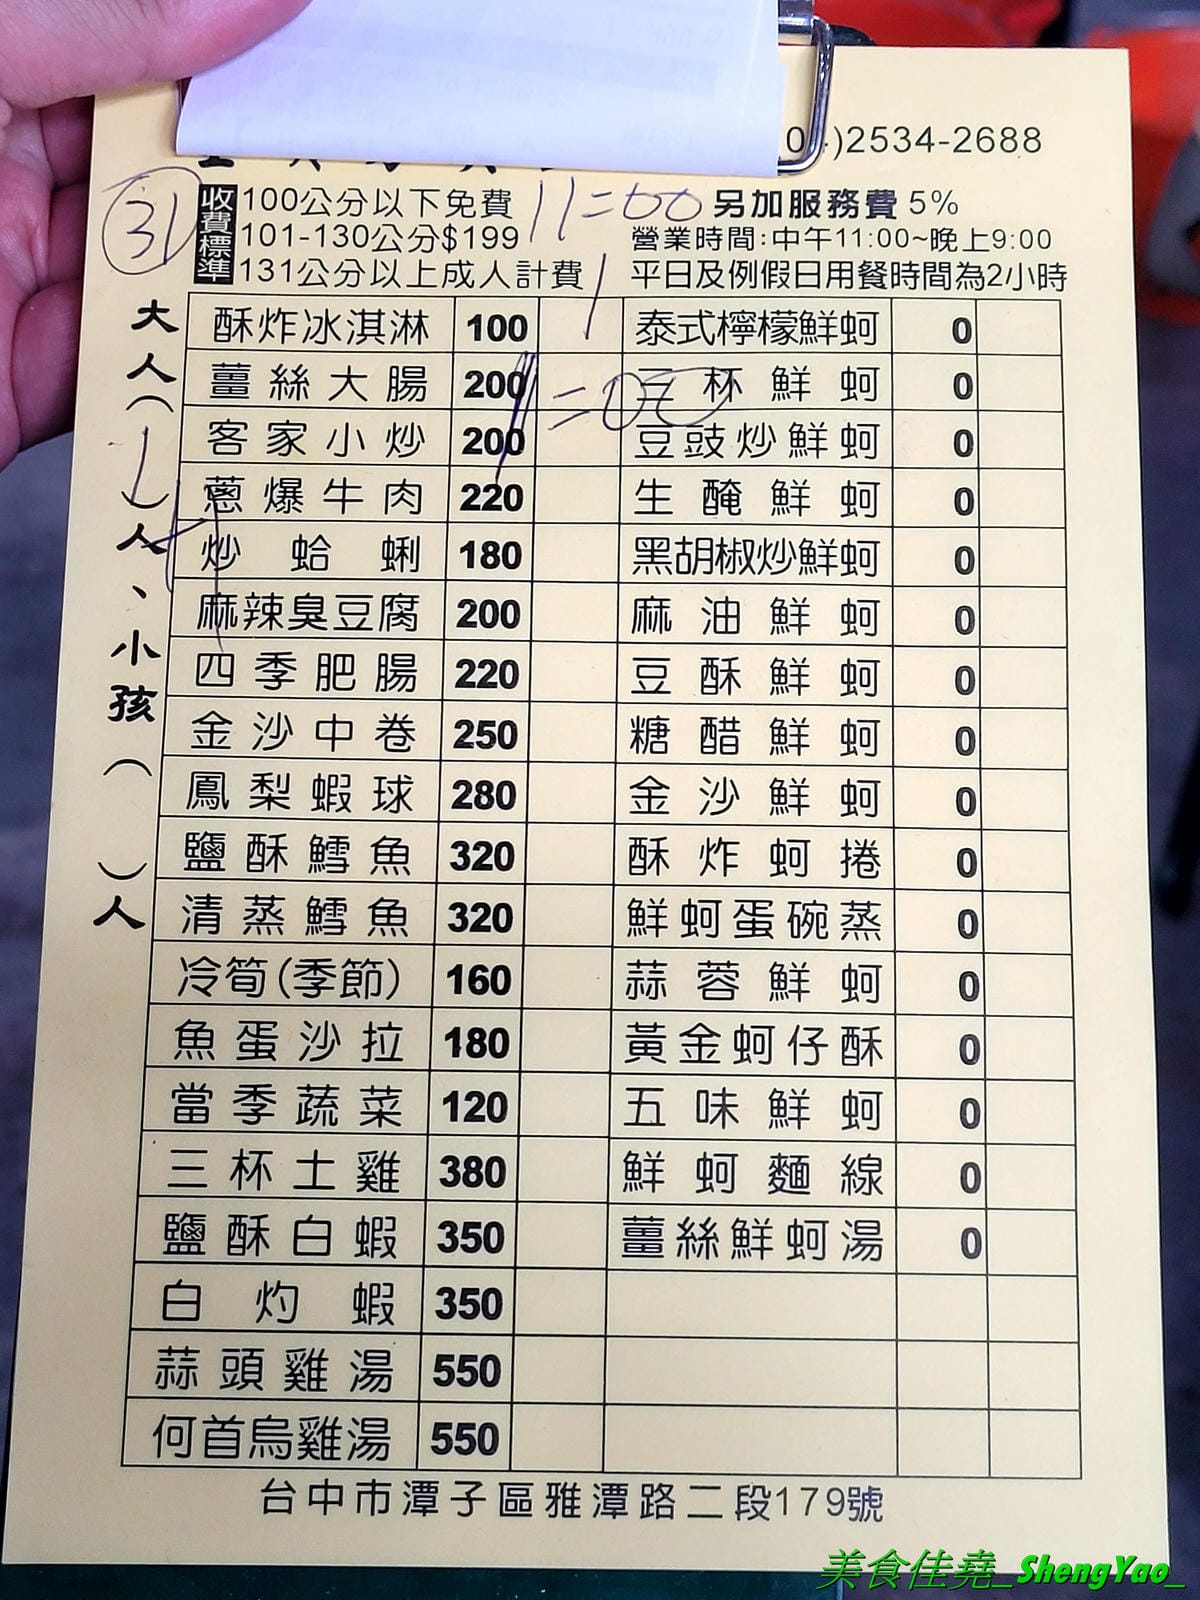 )2534-2688
31
收費標準
100公分以下免費 11=00 另加服務費 5%
101-130公分$199 營業時間:中午11:00~晚上9:00
131公分以上成人計費 平日及例假日用餐時間為2小時
大人( 1 )人、小孩( )人
酥炸冰淇淋 100 泰式檸檬鮮蚵 0
薑絲大腸 200 三杯鮮蚵 0
客家小炒 200 豆豉炒鮮蚵 0
蔥爆牛肉 220 生醃鮮蚵 0
炒蛤蜊 180 黑胡椒炒鮮蚵 0
麻辣臭豆腐 200 麻油鮮蚵 0
四季肥腸 220 豆酥鮮蚵 0
金沙中卷 250 糖醋鮮蚵 0
鳳梨蝦球 280 金沙鮮蚵 0
鹽酥鱈魚 320 酥炸蚵捲 0
清蒸鱈魚 320 鮮蚵蛋碗蒸 0
冷筍(季節) 160 蒜蓉鮮蚵 0
魚蛋沙拉 180 黃金蚵仔酥 0
當季蔬菜 120 五味鮮蚵 0
三杯土雞 380 鮮蚵麵線 0
鹽酥白蝦 350 薑絲鮮蚵湯 0
白灼蝦 350
蒜頭雞湯 550
何首烏雞湯 550
台中市潭子區雅潭路二段179號
美食佳堯_ShengYao_